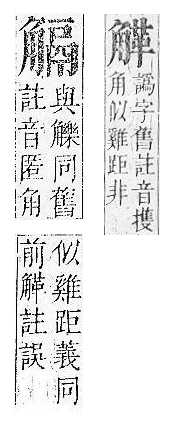 譌字舊註音擭
角似雞距非
與觻同舊
註音匿角
似雞距義同
前註誤